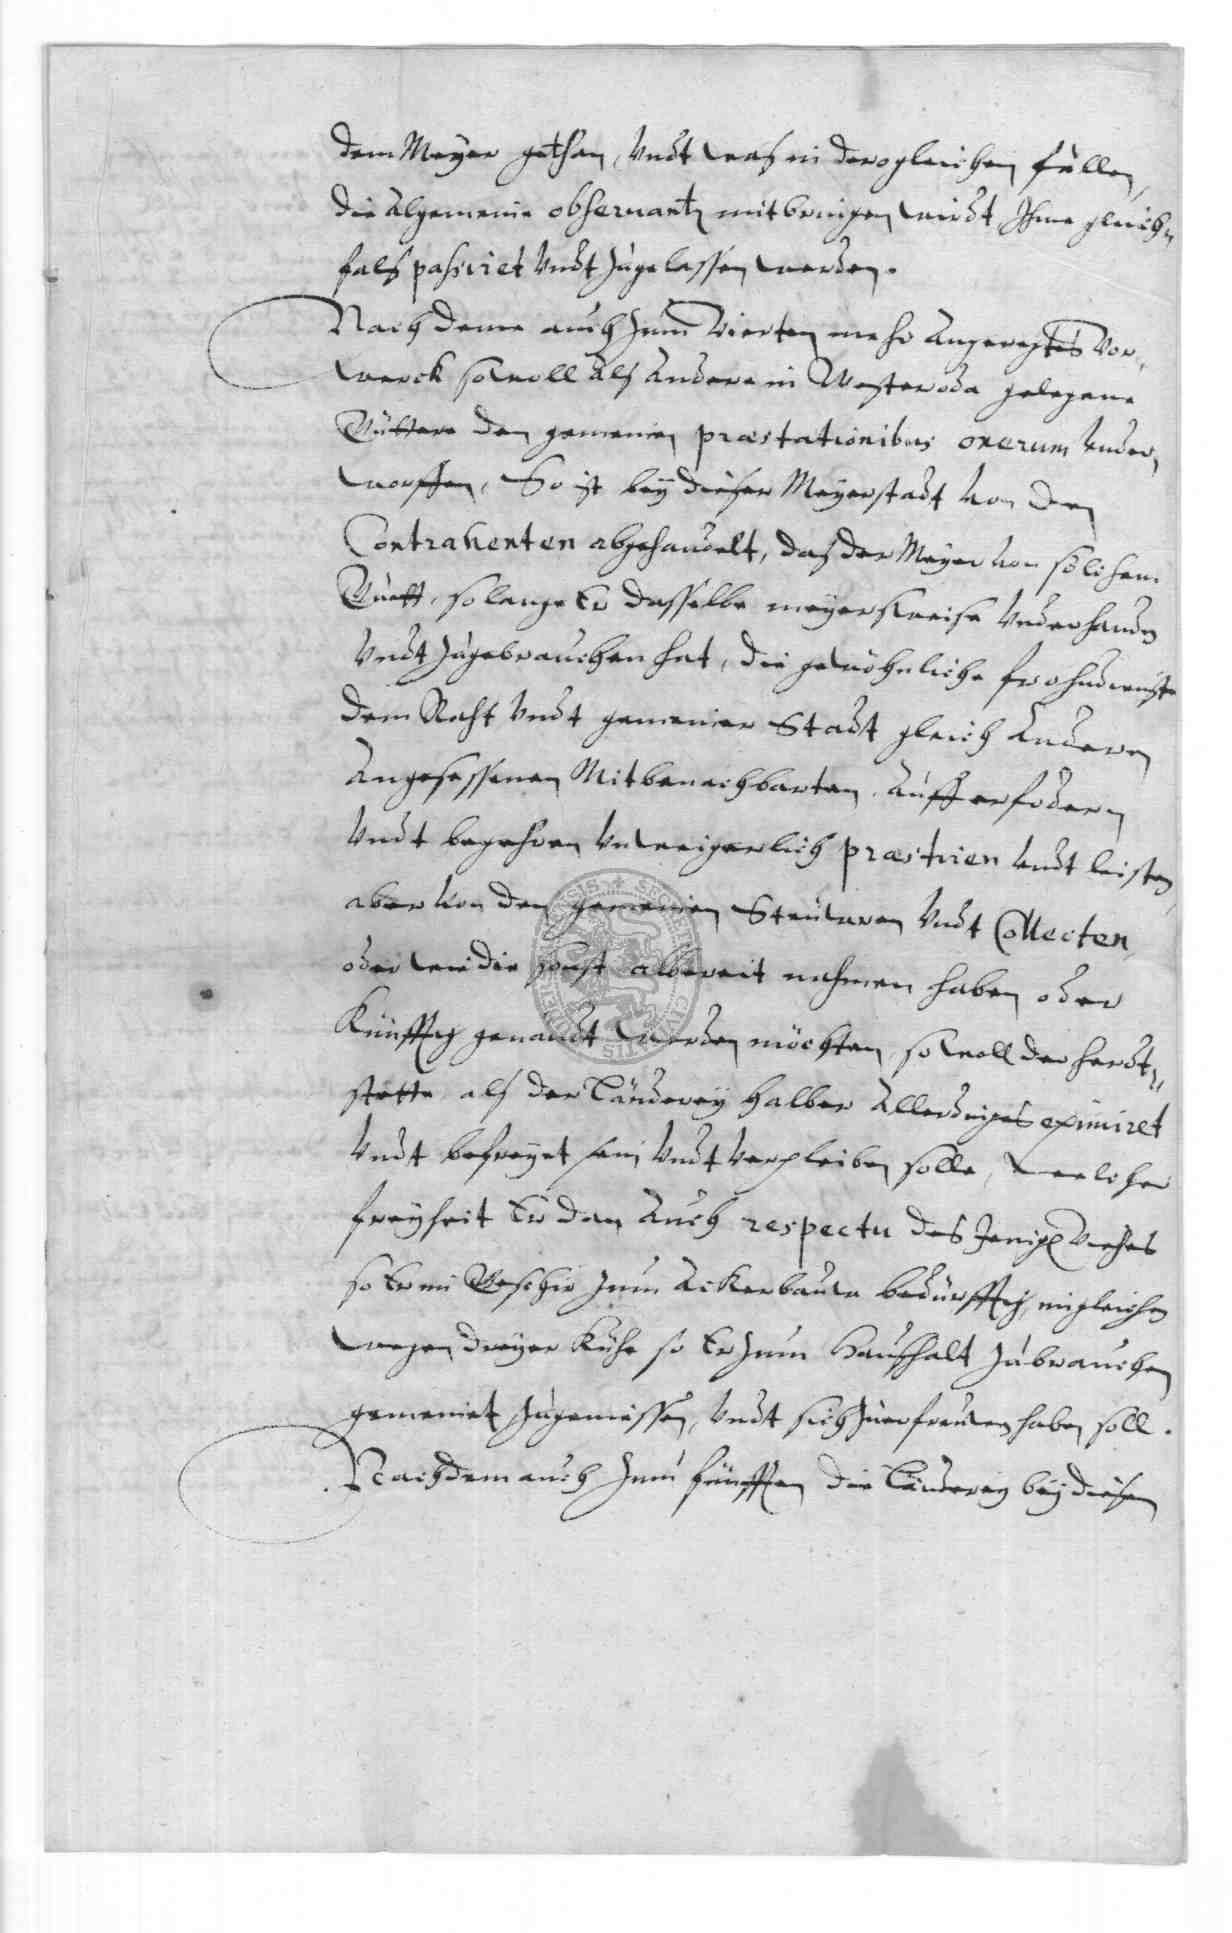 dem Meyer gethan, Vndt waß in dergleichen fällen,
die Algemeine obseruantz mitbringen wirdt, Ihme gleich¬
falß passiret Vndt Zugelassen werden.
Nach deme auch Zum Vierten mehr Angeregtes Vor¬
werck sowoll Alß Andere in Westeroda gelegene
Gütter den gemeinen præstationibus onerum Vnder¬
worffen, So ist bey dieser Meyerstadt von den
Contrahenten abgehandelt, daß der Meyer von solchem
Guett, solange Er dasselbe meyersweise Vnderhanden
Vndt Zugebrauchen hat, die gewöhnliche frohndienste
dem Raht Vndt gemeiner Stadt gleich Anderen
Angesessenen Mitbenachbarten, Auff erfodern
Vndt begehren Vnweigerlich præstiren Vndt leisten,
aber von den gemeinen Steuwren Vndt Collecten,
oder wie die sonst albereit nahmen haben oder
Künfftig genandt werden möchten, sowoll der herdt¬
stette alß der Länderey halber Allerdinges eximiret
Vndt befreyet sein Vndt verpleiben solle, welcher
freyheit Er dan Auch respectu des Jenigen Viehes
so Er in Geschir Zum Ackerbauwe bedürfftig, imgleichen
wegen dreyer Kühe so Er Zum Haußhalt Zubrauchen
gemeinet Zugeniessen, Vndt sich Zuerfreuwen haben soll.
Nachdem auch Zum fünfften die Länderey bey diesem
SECRETUM CIVITATIS